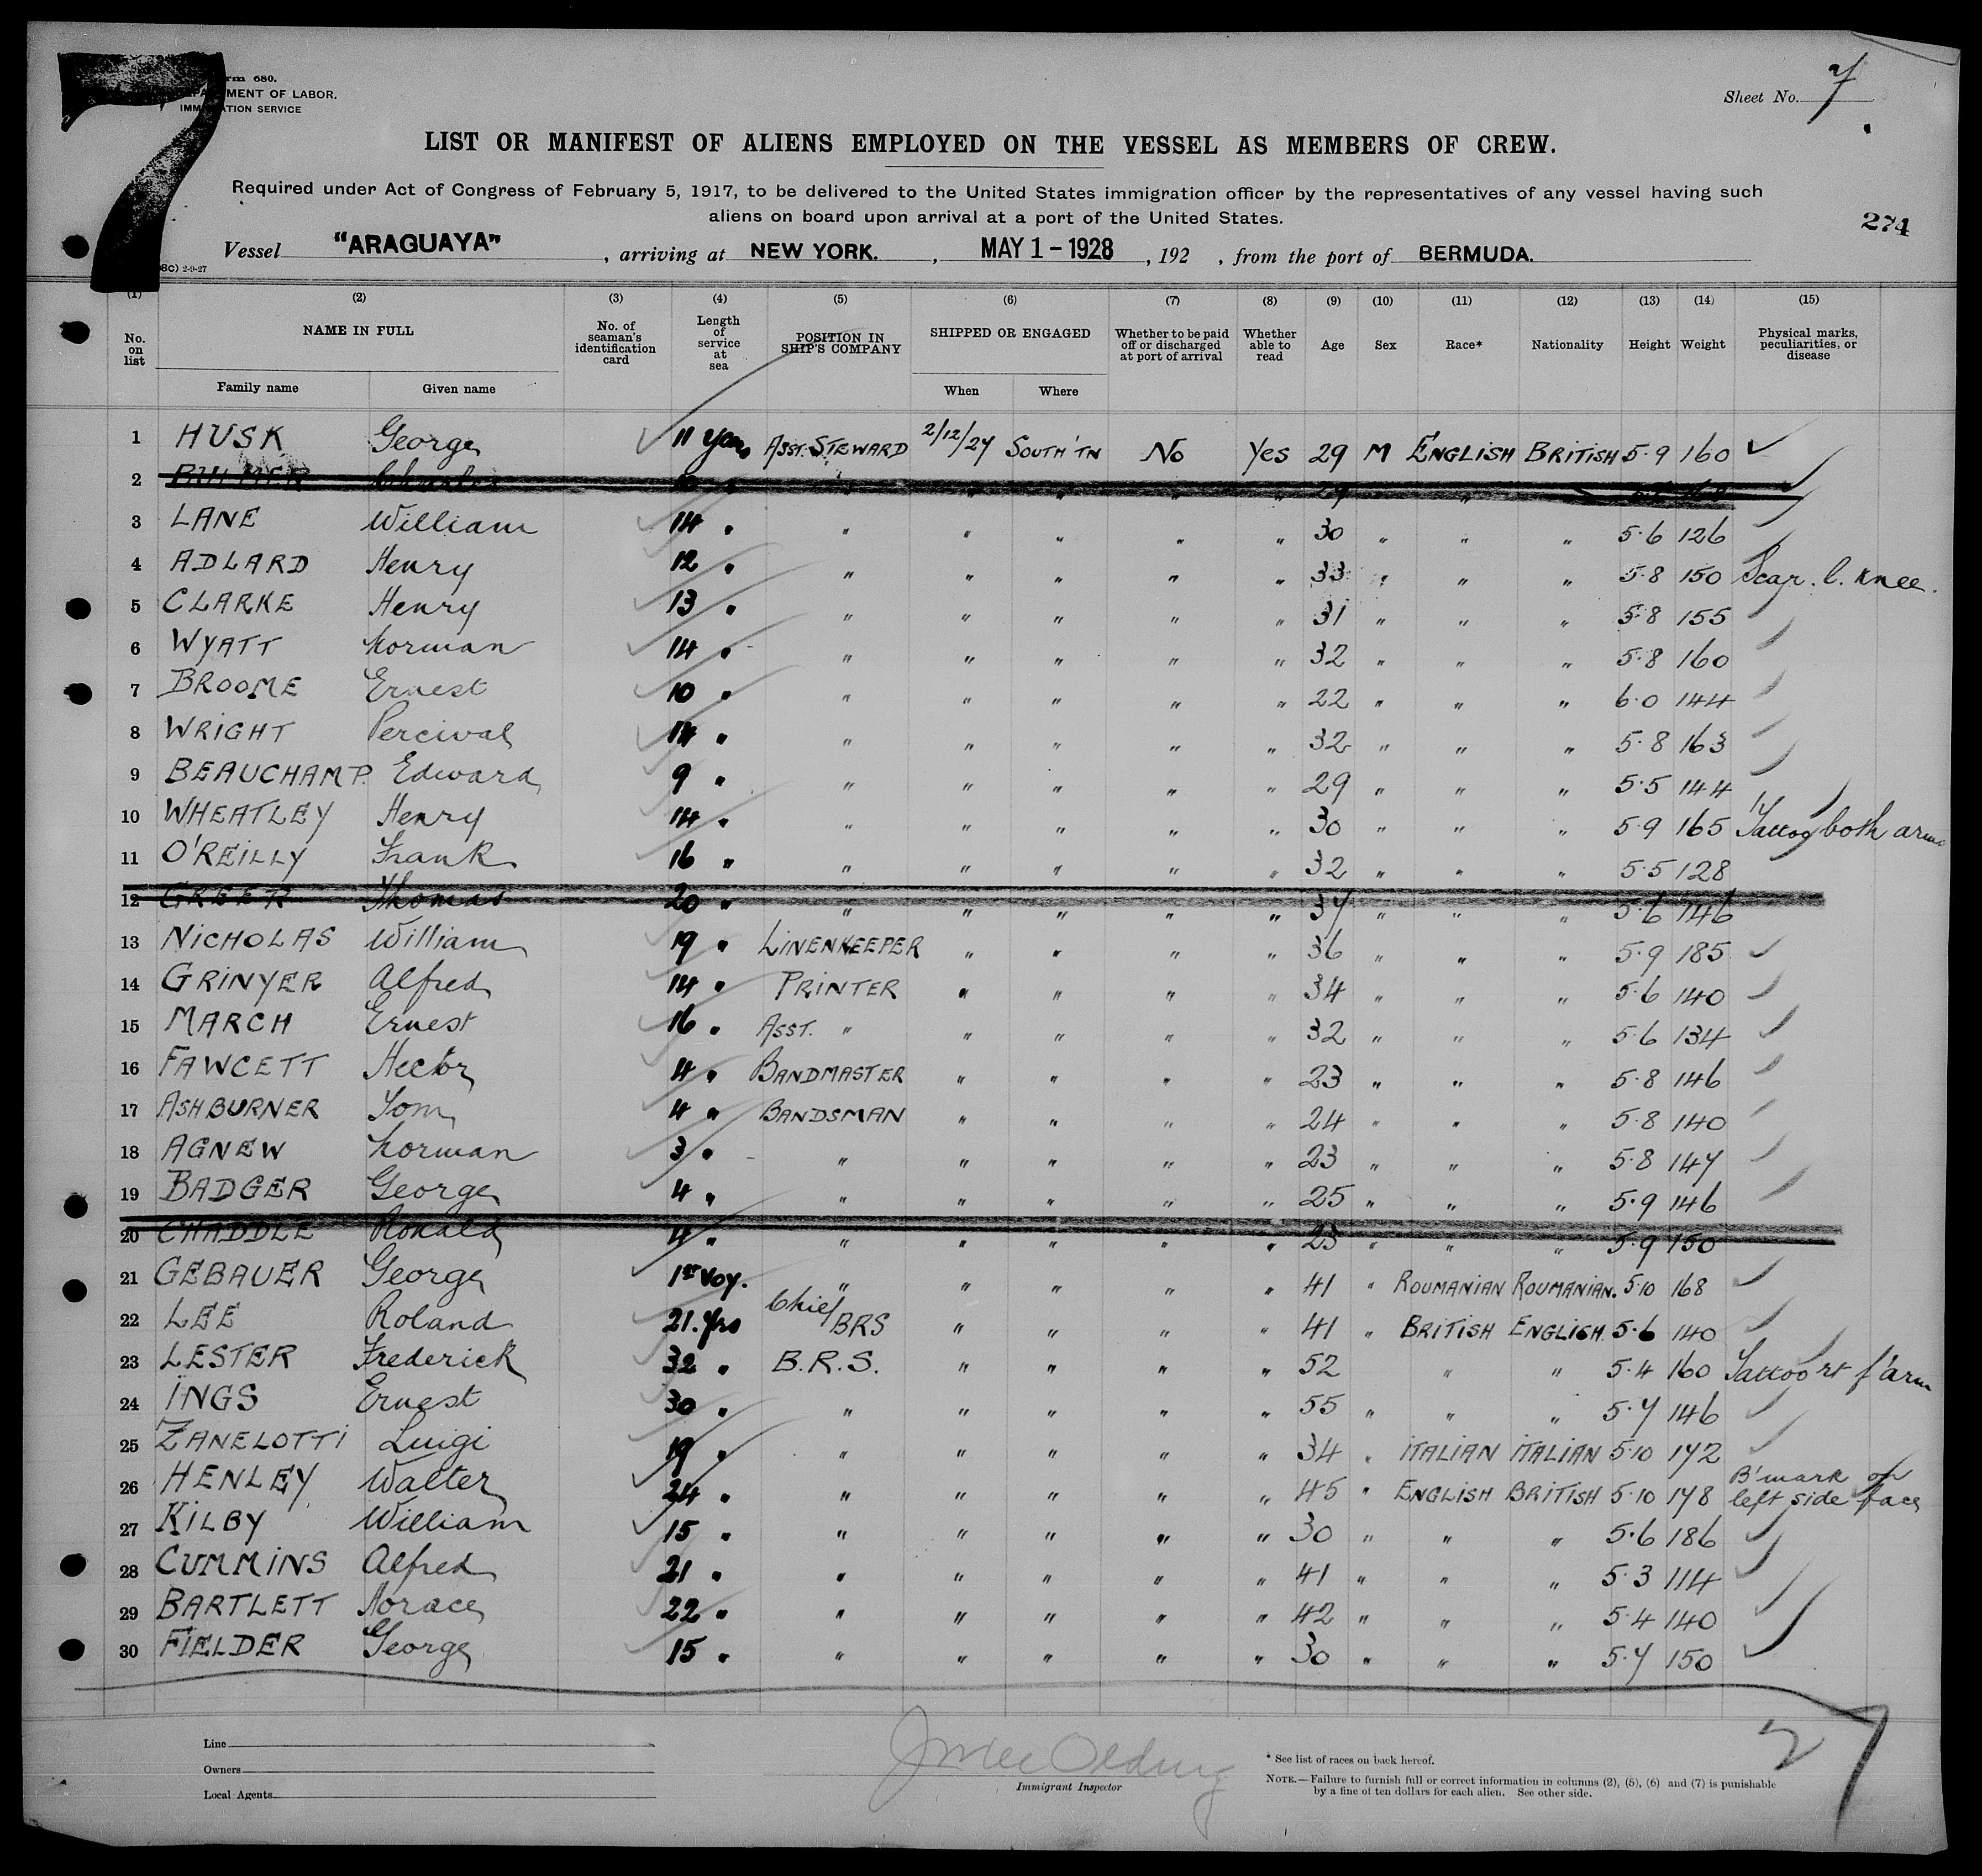 7
rm 680.
MENT OF LABOR.
IMMIGRATION SERVICE
Sheet No. 7
LIST OR MANIFEST OF ALIENS EMPLOYED ON THE VESSEL AS MEMBERS OF CREW.
Required under Act of Congress of February 5, 1917, to be delivered to the United States immigration officer by the representatives of any vessel having such
aliens on board upon arrival at a port of the United States.
274
Vessel "ARAGUAYA" , arriving at NEW YORK. , MAY 1 - 1928 , 192 , from the port of BERMUDA.
2-9-27
(1) (2) (3) (4) (5) (6) (7) (8) (9) (10) (11) (12) (13) (14) (15)
No. on list NAME IN FULL No. of seaman's identification card Length of service at sea POSITION IN SHIP'S COMPANY SHIPPED OR ENGAGED Whether to be paid off or discharged at port of arrival Whether able to read Age Sex Race* Nationality Height Weight Physical marks, peculiarities, or disease
Family name Given name When Where
1 HUSK George 11 years ASST. STEWARD 2/12/27 SOUTH'TN No Yes 29 M ENGLISH BRITISH 5.9 160
2 BULMER Charles " " " " " 29 "
3 LANE William 14 " " " " " " 30 " " " 5.6 126
4 ADLARD Henry 12 " " " " " " 33 " " " 5.8 150 Scar. l. knee.
5 CLARKE Henry 13 " " " " " " 31 " " " 5.8 155
6 WYATT Norman 14 " " " " " " 32 " " " 5.8 160
7 BROOME Ernest 10 " " " " " " 22 " " " 6.0 144
8 WRIGHT Percival 14 " " " " " " 32 " " " 5.8 163
9 BEAUCHAMP. Edward 9 " " " " " " 29 " " " 5.5 144
10 WHEATLEY Henry 14 " " " " " " 30 " " " 5.9 165 Tattoo both arms
11 O'REILLY Frank 16 " " " " " " 32 " " " 5.5 128
12 GREER Thomas 20 " " " " " " 37 " " " 5.6 146
13 NICHOLAS William 19 " LINENKEEPER " " " " 36 " " " 5.9 185
14 GRINYER Alfred 14 " PRINTER " " " " 34 " " " 5.6 140
15 MARCH Ernest 16 " ASST. " " " " " 32 " " " 5.6 134
16 FAWCETT Hector 4 " BANDMASTER " " " " 23 " " " 5.8 146
17 ASHBURNER Tom 4 " BANDSMAN " " " " 24 " " " 5.8 140
18 AGNEW Norman 3 " " " " " " 23 " " " 5.8 147
19 BADGER George 4 " " " " " " 25 " " " 5.9 146
20 CHADDLE Ronald 4 " " " " " " 23 " " " 5.9 150
21 GEBAUER George 1st voy. " " " " " 41 " ROUMANIAN ROUMANIAN. 5.10 168
22 LEE Roland 21. yrs Chief/BRS " " " " 41 " BRITISH ENGLISH. 5.6 140
23 LESTER Frederick 32 " B.R.S. " " " " 52 " " 5.4 160 Tattoo rt f'arm
24 INGS Ernest 30 " " " " " " 55 " " " 5.7 146
25 ZANELOTTI Luigi 19 " " " " " " 34 " ITALIAN ITALIAN 5.10 172
26 HENLEY Walter 24 " " " " " " 45 " ENGLISH BRITISH 5.10 178 B'mark on left side face
27 KILBY William 15 " " " " " " 30 " " " 5.6 186
28 CUMMINS Alfred 21 " " " " " " 41 " " " 5.3 114
29 BARTLETT Horace 22 " " " " " " 42 " " " 5.4 140
30 FIELDER George 15 " " " " " " 30 " " " 5.7 150
Line
Owners
Local Agents
Immigrant Inspector
* See list of races on back hereof.
NOTE.—Failure to furnish full or correct information in columns (2), (5), (6) and (7) is punishable
by a fine of ten dollars for each alien. See other side.
27